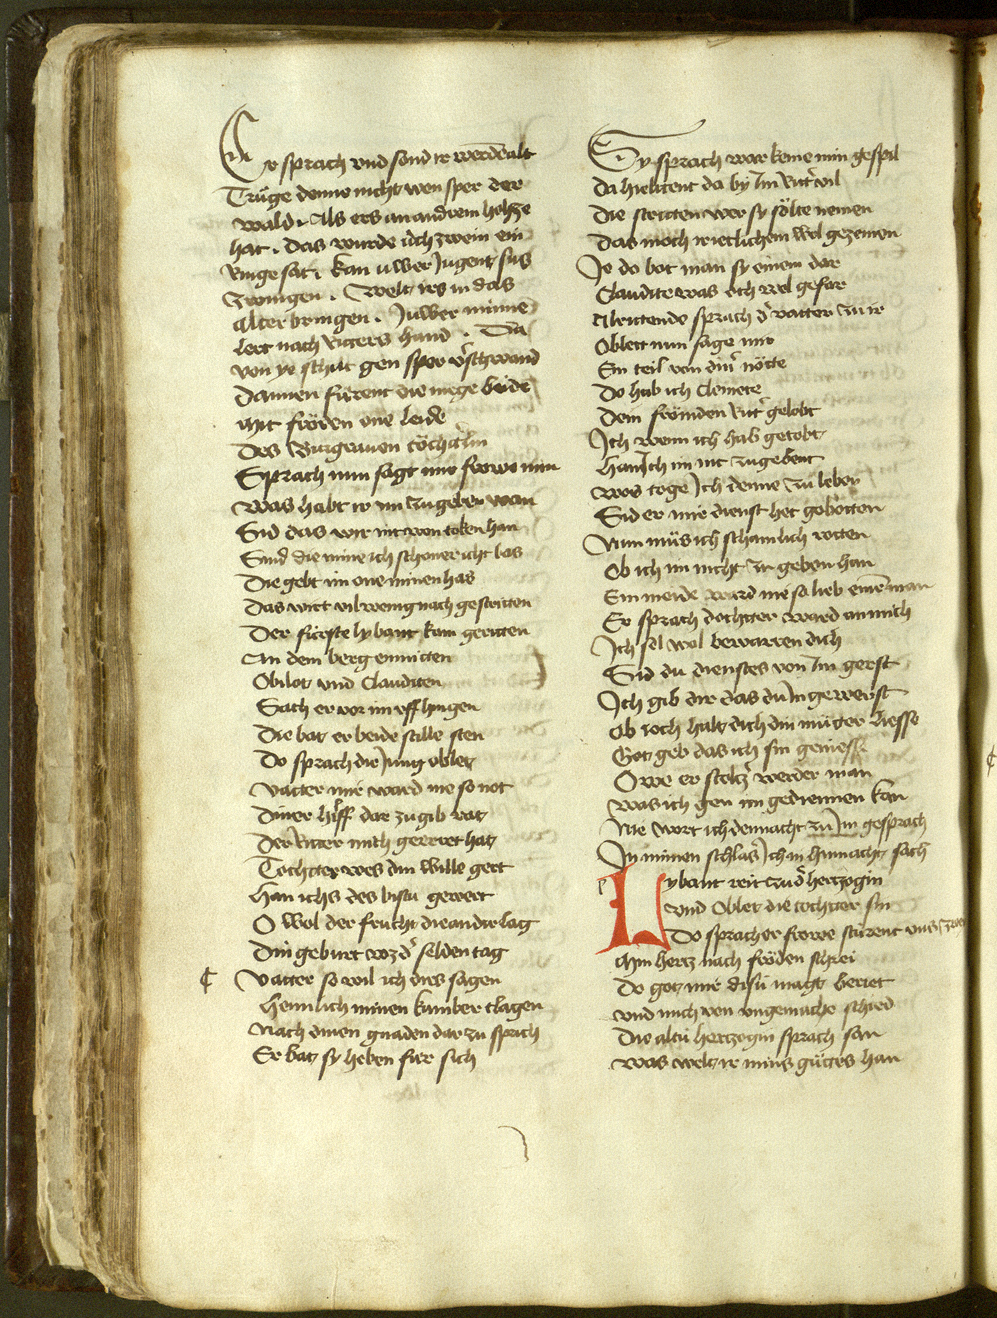 Er sprach vnd sond ir werden alt
Trüge denne nicht wen sper der
wald . Als ers an andrem holtze
hat . Das wurde üch zwein ein
Ringe sat . kan uwer Jugent sus
Zwingen . Welt irs in das
Alter bringen . Juwer minne
lert nach Ritters hand . Da
von ye schilt gen sper v'schwand
Dannen fürent die mege beide
Mit fröden one leide
Des Burgrauen töchterlin
Sprach nun sagt mir frowe min
Was habt ir im zu geben wan
Sid das wir nit won token han
Sind die mine ich schoner icht bas
Die gebt im one minen has
Das wirt vil wenig nach gestritten
Der fürste lybaut kam geritten
An dem berg enmitten
Obilot vnd Clauditen
Sach er vor im vff hingen
Die bat er beide stille sten
Do sprach die Jung oblet
Vatter mir ward nie so not
Diner hilff dar zu gib rat
Der Ritter mich gewert hat
Tochtter wes din wille gert
Han ichs des bistu gewert
O wol der frucht die an dir lag
Din geburt woz d' selden tag
Vatter so wil ich dirs sagen
Heimlich minen kumber clagen
Nach dinen gnaden dar zu sprich
Er bat sy heben für sich
Sy sprach war keme min gespil
Da hieltent da by Im Ritt' vil
Die stritten wer sy sölte nemen
Das moch ir ietlichem wol gezemen
Je do bot man sy einem dar
Claudite was och wol gefar
Al rittende sprach d' vatter zu ir
Oblett nun sage mir
Ein teil von din' nötte
Do hab ich Clemete
Dem frömden Ritt' gelobt
Ich wenn ich hab getobt
Han Ich im nit zu gebent
Wos toge Ich denne zu leben
Sid er mir dienst het gebotten
Nun müs ich schamlich rotten
Ob ich im nicht zu geben han
Ein meide ward nie so lieb ein man
Er sprach dochtter ward an mich
Ich sol wol bewarren dich
Sid du dienstes von Im gerst
Ich gib dir das du In gewerst
Ob ioch halt dich din mütter liesse
Got geb das ich sin geniesse
O we er stoltz werder man
Was ich gen im gediennen kan
Nie wort ich dennacht zu Im gesprach
In minen schlaff Ich In hinnacht sach
Lybaut reit zu d' hertzogin
Vnd Oblet die tochtter sin
Do sprach er frowe stürent vns zwei
Min hertz nach fröden schrei
Do got mir disü magt beriet
Vnd mich von vngemache schied
Die altü hertzogin sprach san
Was welt ir mins gütes han